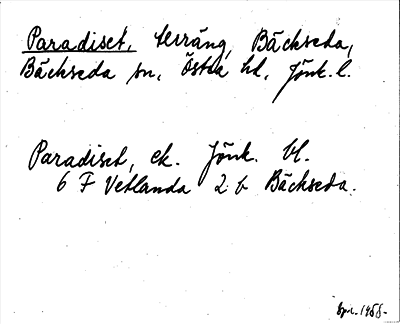 Paradiset, terräng, Bäckseda,
Bäckseda sn, Östra hd, Jönk. l.
Paradiset, ek. Jönk. bl.
6 F Vetlanda 2 b Bäckseda.
1958.